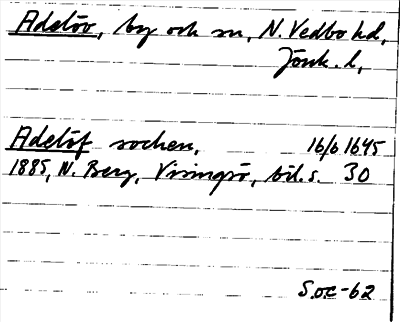 Adelöv, by och sn, N. Vedbo hd,
Jönk. l,
Adelöf sochen, 16/6 1645
1885, N. Berg, Visingsö, bil. s. 30
Soc-62